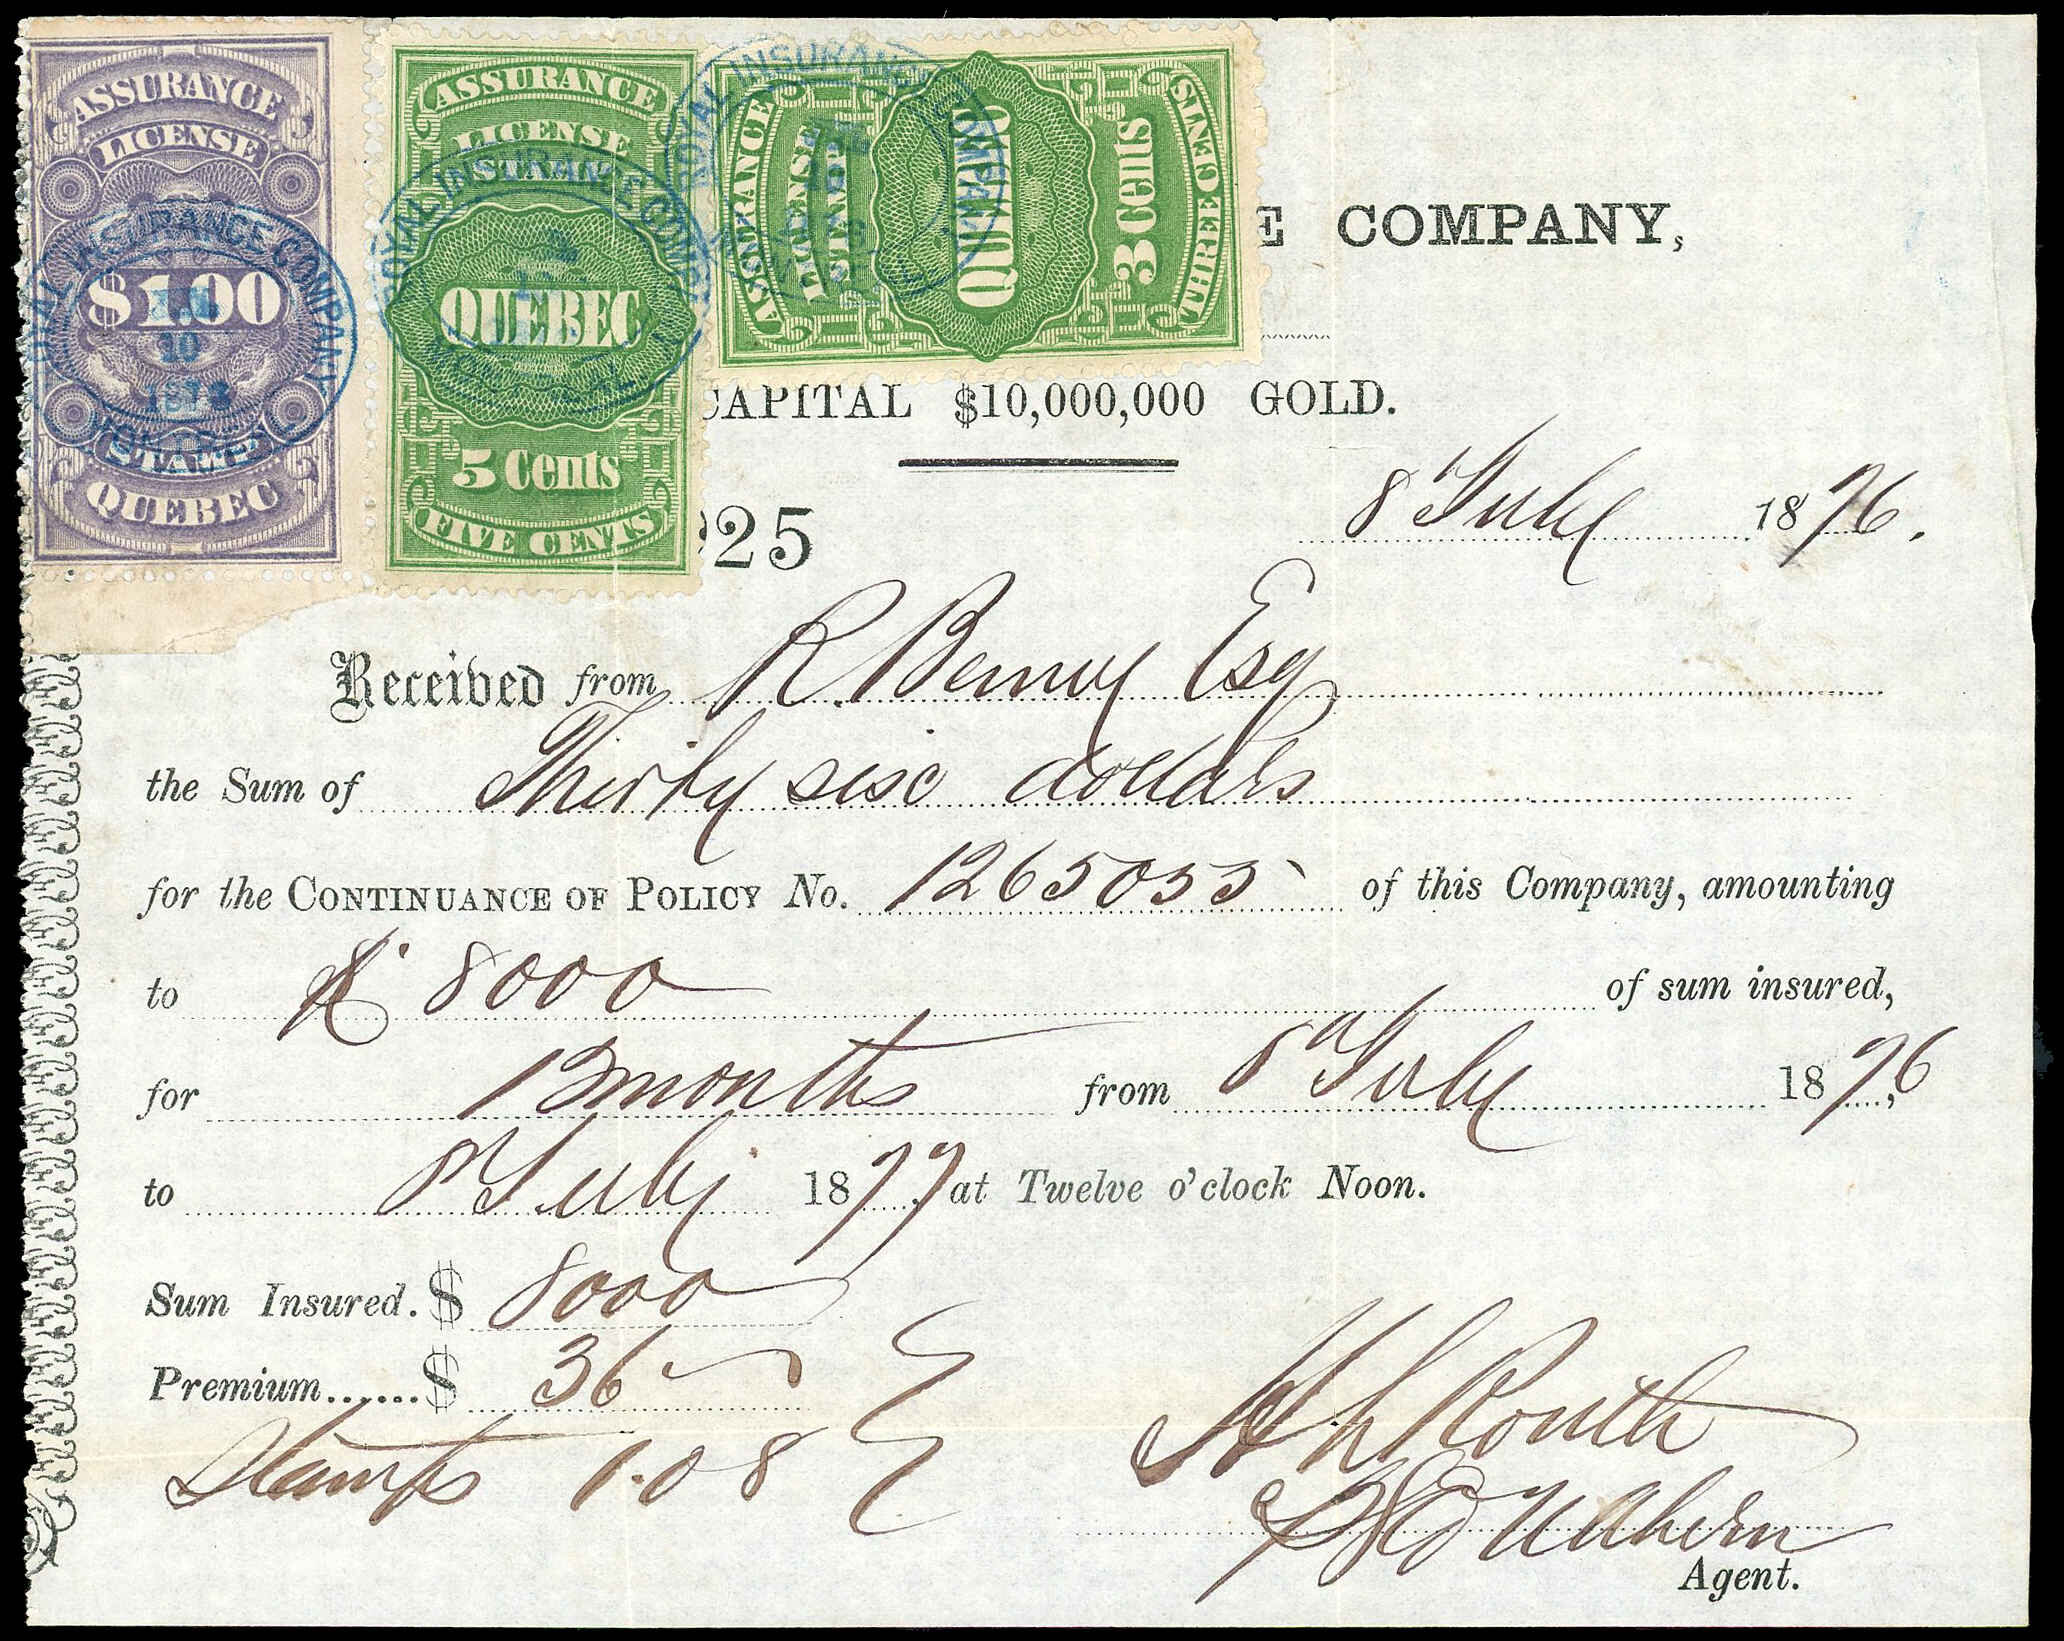 ASSURANCE
LICENSE
$1.00
STAMP
QUEBEC
ROYAL INSURANCE COMPANY
10
MONTREAL
ASSURANCE
LICENSE
STAMP
QUEBEC
5 Cents
FIVE CENTS
ROYAL INSURANCE COMPANY
ASSURANCE
LICENSE
STAMP
QUEBEC
3 Cents
THREE CENTS
ROYAL INSURANCE COMPANY
E COMPANY,
CAPITAL $10,000,000 GOLD.
25
8 July 1876.
Received from R. Esq
the Sum of Thirty six dollars
for the CONTINUANCE OF POLICY No. 1265055 of this Company, amounting
to $ 8000 of sum insured,
for 12 months from 8 July 1876,
to 8 July 1877 at Twelve o'clock Noon.
Sum Insured. $ 8000
Premium......$ 36
Stamps 1.08
H L Routh
Agent.